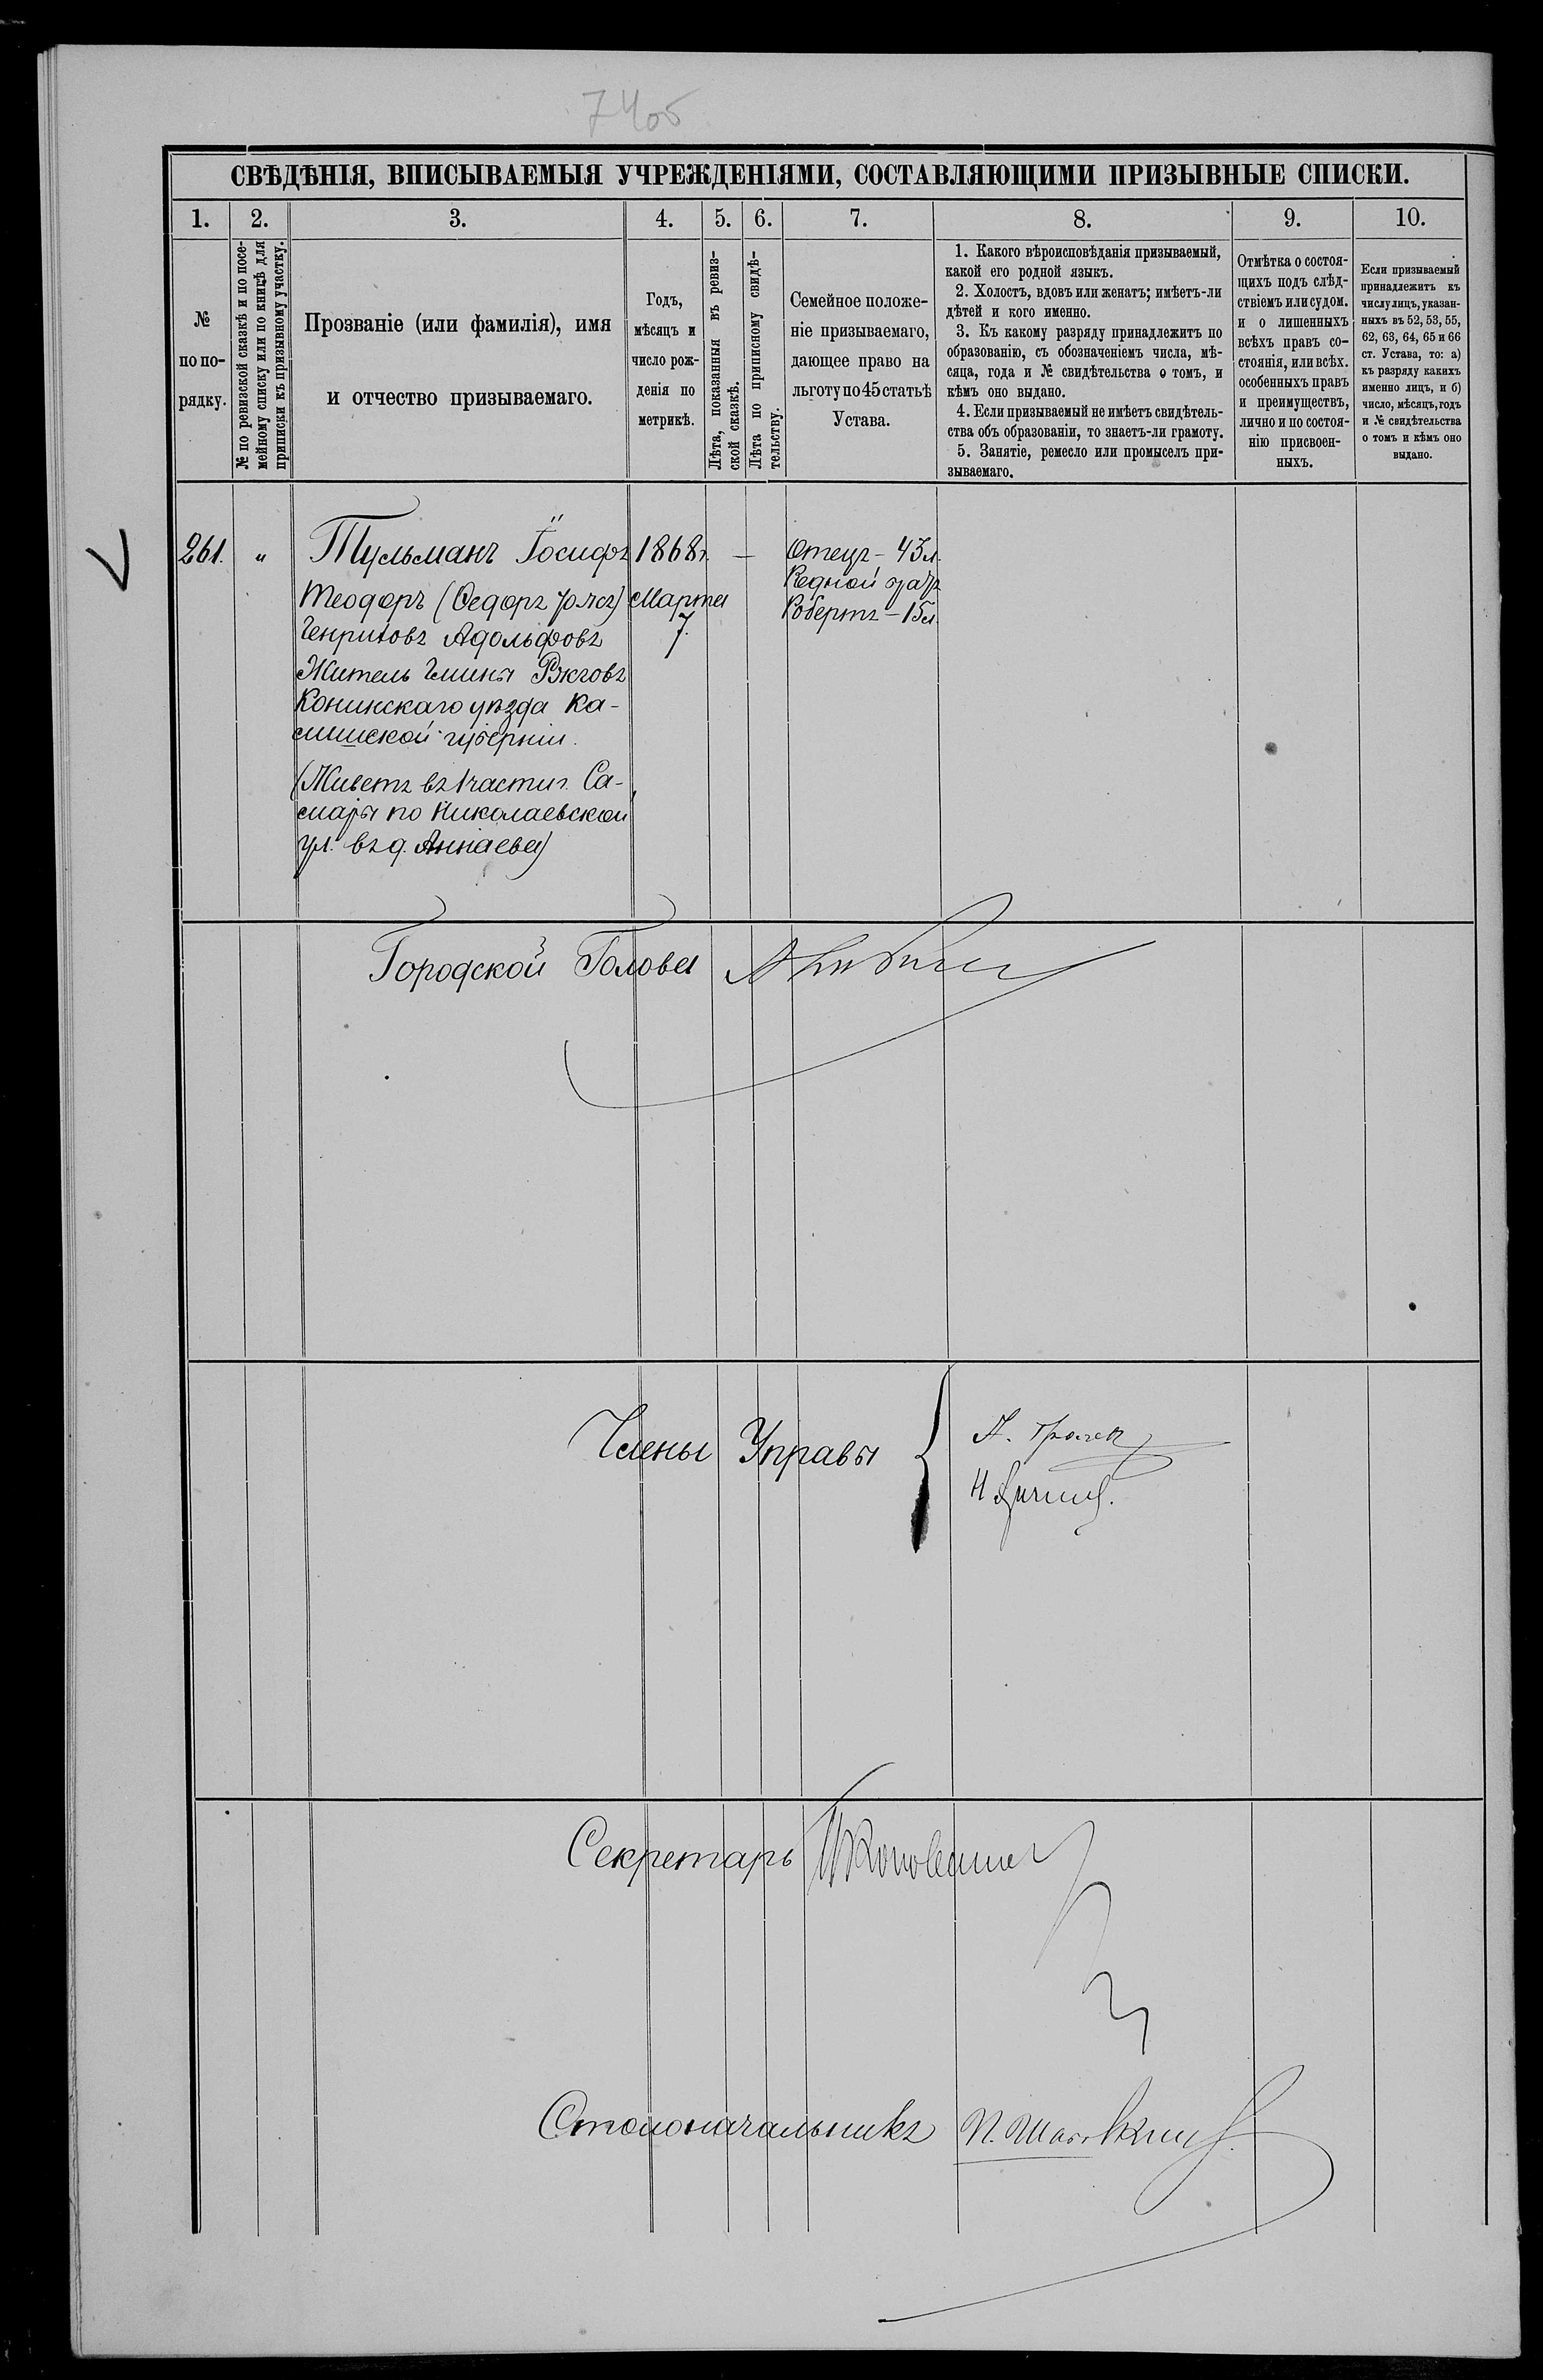 7405
СВѢДѢНІЯ, ВПИСЫВАЕМЫЯ УЧРЕЖДЕНІЯМИ, СОСТАВЛЯЮЩИМИ ПРИЗЫВНЫЕ СПИСКИ.
1. 2. 3. 4. 5. 6. 7. 8. 9. 10.
№
по по-
рядку.
№ по ревизской сказкѣ и по посе-
мейному списку или по кницѣ для
приписки къ призывному участку.
Прозваніе (или фамилія), имя
и отчество призываемаго.
Годъ,
мѣсяцъ и
число рож-
денія по
метрикѣ.
Лѣта, показанныя въ ревиз-
ской сказкѣ.
Лѣта по приписному свидѣ-
тельству.
Семейное положе-
ніе призываемаго,
дающее право на
льготу по 45 статьѣ
Устава.
1. Какого вѣроисповѣданія призываемый,
какой его родной языкъ.
2. Холостъ, вдовъ или женатъ; имѣетъ-ли
дѣтей и кого именно.
3. Къ какому разряду принадлежитъ по
образованію, съ обозначеніемъ числа, мѣ-
сяца, года и № свидѣтельства о томъ, и
кѣмъ оно выдано.
4. Если призываемый не имѣетъ свидѣтель-
ства объ образованіи, то знаетъ-ли грамоту.
5. Занятіе, ремесло или промыселъ при-
зываемаго.
Отмѣтка о состоя-
щихъ подъ слѣд-
ствіемъ или судом.
и о лишенныхъ
всѣхъ правъ со-
стоянія, или всѣх.
особенныхъ правъ
и преимуществъ,
лично и по состоя-
нію присвоен-
ныхъ.
Если призываемый
принадлежитъ къ
числу лицъ, указан-
ныхъ въ 52, 53, 55,
62, 63, 64, 65 и 66
ст. Устава, то: а)
къ разряду какихъ
именно лицъ, и б)
число, мѣсяцъ, годъ
и № свидѣтельства
о томъ и кѣмъ оно
выдано.
261. „ Тульманъ Іосифъ
Теодоръ (Ѳедоръ тожъ)
Генриховъ Адольфовъ
Житель Гмины
Конинскаго уѣзда Ка-
лишской губерніи.
(Живетъ въ 1 части г. Са-
мары по Николаевской
ул. въ д. Аннаева)
1868 г.
Марта
7.
—
Отецъ – 43 л.
Родной братъ
Робертъ – 15 л.
Городской Голова
Члены Управы
Секретарь
Столоначальникъ